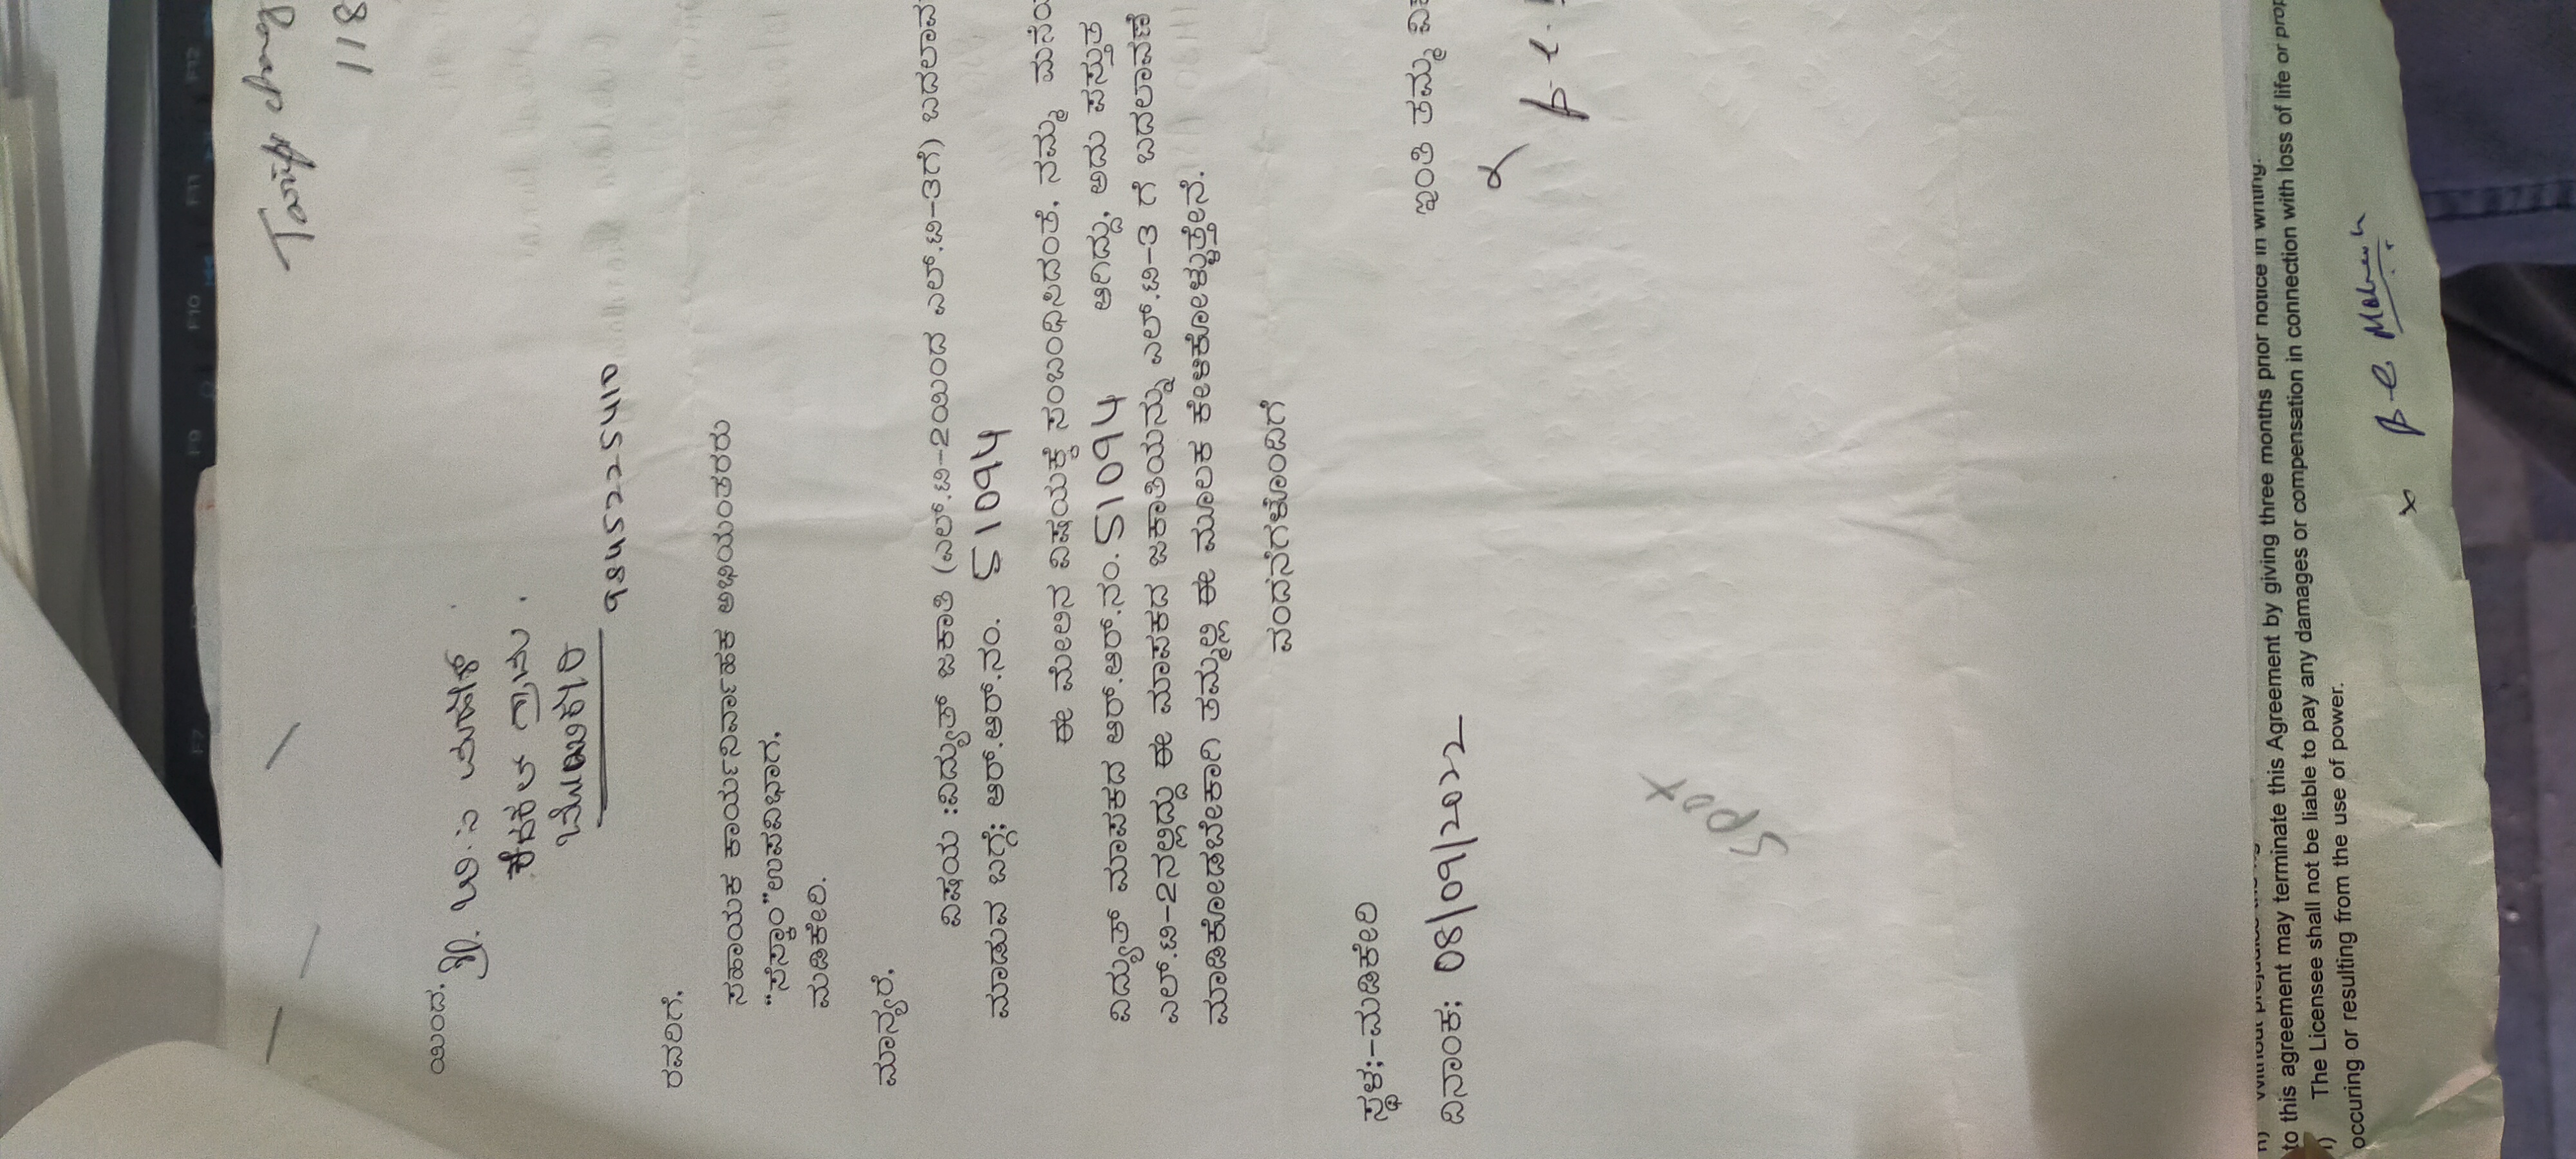 Tariff chang
118
ಯಿಂದ.
ಶ್ರೀ. ಬಿ.ಸಿ ಮಹೇಶ್
ಗ್ರಾಮ
9845222540
ರವರಿಗೆ.
ಸಹಾಯಕ ಕಾರ್ಯನಿರ್ವಾಹಕ ಅಭಿಯಂತರರು
"ಸೆಸ್ಕಾಂ"ಉಪವಿಭಾಗ,
ಮಡಿಕೇರಿ.
ಮಾನ್ಯರೆ,
ವಿಷಯ :ವಿದ್ಯುತ್ ಜಕಾತಿ (ಎಲ್.ಟಿ-2ಯಿಂದ ಎಲ್.ಟಿ-3ಗೆ) ಬದಲಾವ
ಮಾಡುವ ಬಗ್ಗೆ: ಆರ್.ಆರ್.ನಂ. 51094
ಈ ಮೇಲಿನ ವಿಷಯಕ್ಕೆ ಸಂಬಂಧಿಸಿದಂತೆ, ನಮ್ಮ ಮನೆಯ
ವಿದ್ಯುತ್ ಮಾಪಕದ ಆರ್.ಆರ್.ನಂ. 51094 ಆಗಿದ್ದು, ಅದು ಪ್ರಸ್ತುತ
ಎಲ್.ಟಿ-2ನಲ್ಲಿದ್ದು ಈ ಮಾಪಕದ ಜಕಾತಿಯನ್ನು ಎಲ್.ಟಿ-3 ಗೆ ಬದಲಾವಣೆ
ಮಾಡಿಕೊಡಬೇಕಾಗಿ ತಮ್ಮಲ್ಲಿ ಈ ಮೂಲಕ ಕೇಳಿಕೊಳ್ಳುತ್ತೇನೆ.
ವಂದನೆಗಳೊಂದಿಗೆ
ಇಂತಿ ತಮ್ಮ ವಿಶ
ಸ್ಥಳ:-ಮಡಿಕೇರಿ
ದಿನಾಂಕ: 08/09/2022
to this agreement may terminate this Agreement by giving three months prior notice in writing.
The Licensee shall not be liable to pay any damages or compensation in connection with loss of life or prop
occuring or resulting from the use of power.